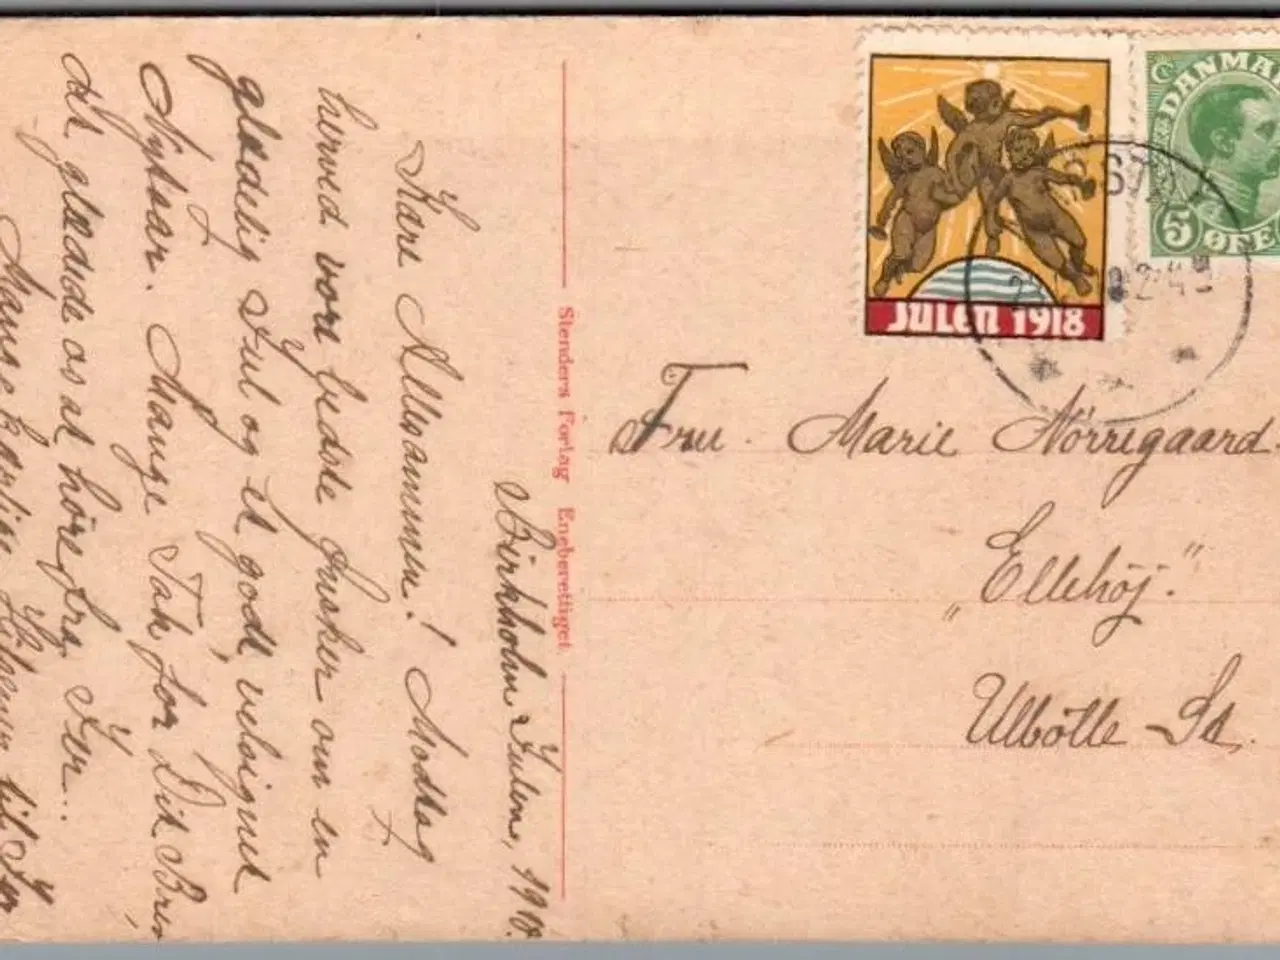 Birkholm Julen, 1918.
Kære Allesammen! Modtag
herved vore bedste Ønsker om en
glædelig Jul og et godt, velsignet
Nytaar. Mange Tak for Dit Brev,
det glædede os at höre fra Jer..
Mange kærlige Hilsner til Jer
Stenders Forlag Eneberettiget.
JULEN 1918
DANMA
5 ØRE
Fru. Marie Nörregaard.
„Ellehöj."
Ulbölle - St.